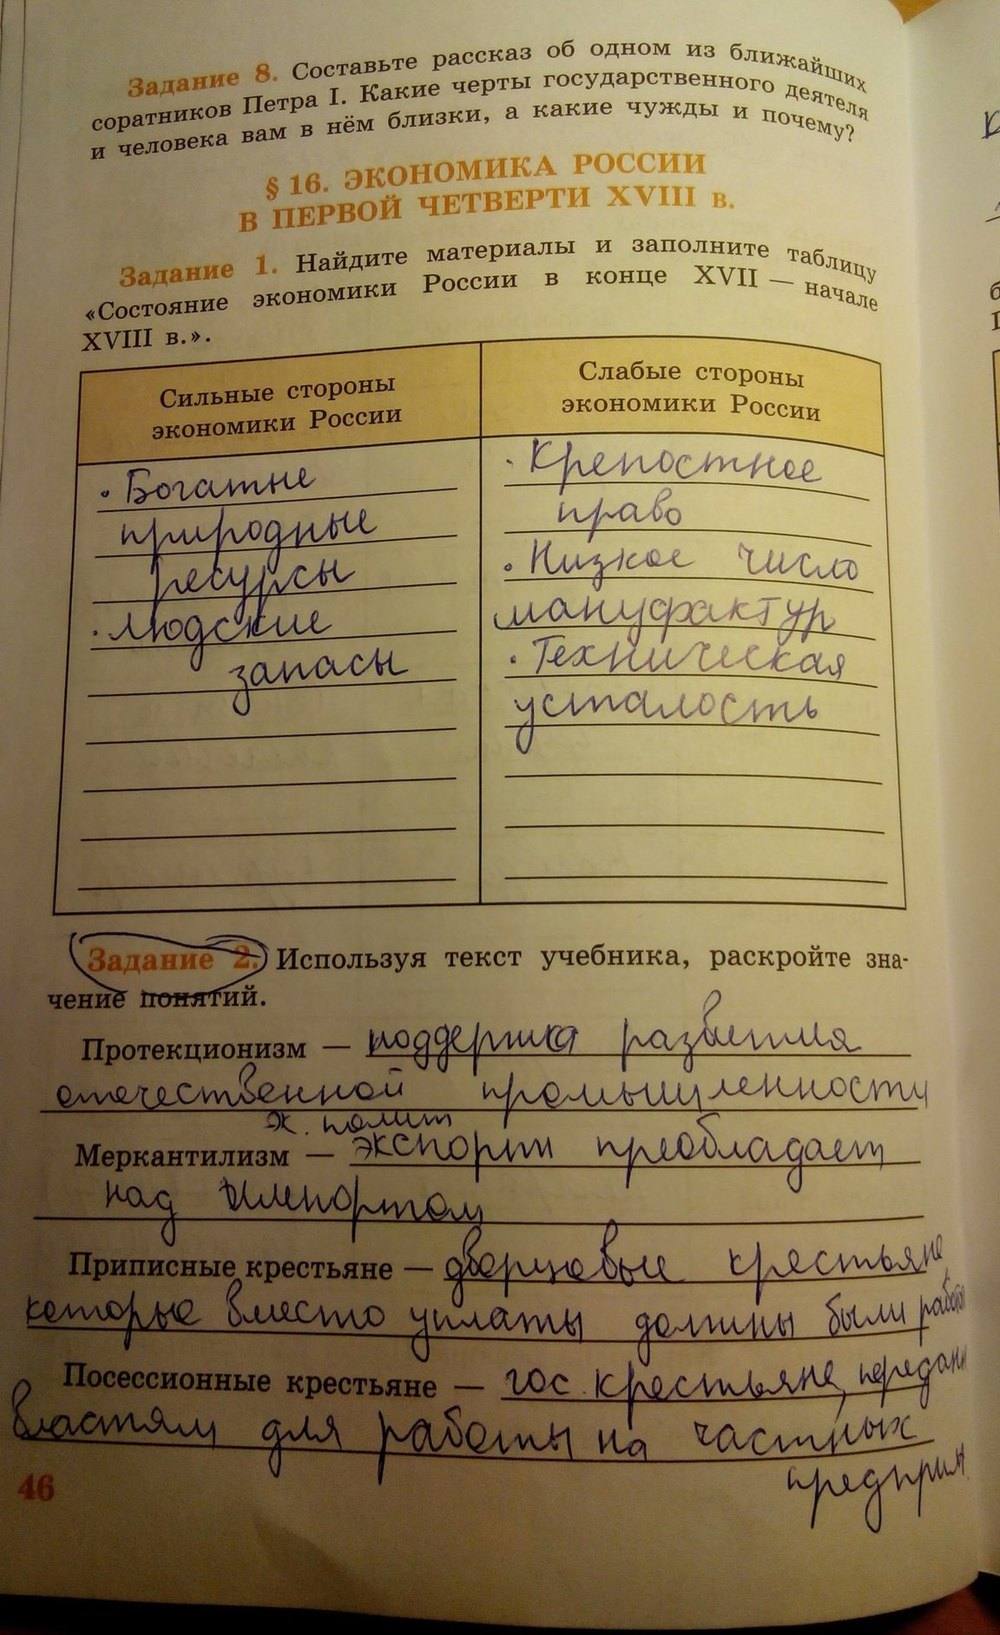 Задание 8. Составьте рассказ об одном из ближайших
соратников Петра I. Какие черты государственного деятеля
и человека вам в нём близки, а какие чужды и почему?
§ 16. ЭКОНОМИКА РОССИИ
В ПЕРВОЙ ЧЕТВЕРТИ XVIII в.
Задание 1. Найдите материалы и заполните таблицу
«Состояние экономики России в конце XVII — начале
XVIII в.».
Сильные стороны
экономики России
· Богатые
природные
ресурсы
· людские
запасы
Слабые стороны
экономики России
· Крепостное
право
· Низкое число
мануфактур
· Техническая
усталость
Задание 2. Используя текст учебника, раскройте зна-
чение понятий.
Протекционизм — поддержка развития
отечественной промышленности
эк. полит
Меркантилизм — экспорт преобладает
над импортом
Приписные крестьяне — дворцовые крестьяне,
которые вместо уплаты должны были
Посессионные крестьяне — гос. крестьяне,
властям для работы на частных
предприм
46